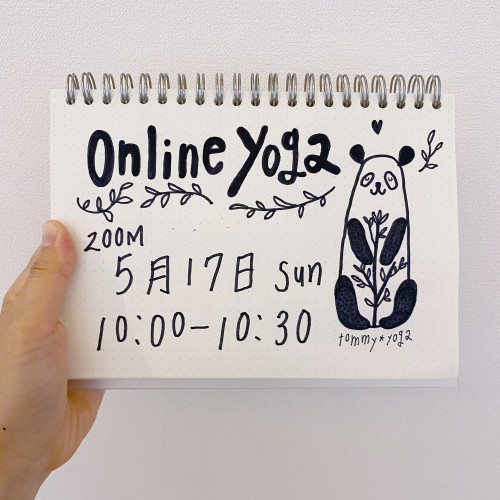 Online Yoga
ZOOM
5月17日 sun
10:00-10:30
tommy*yoga